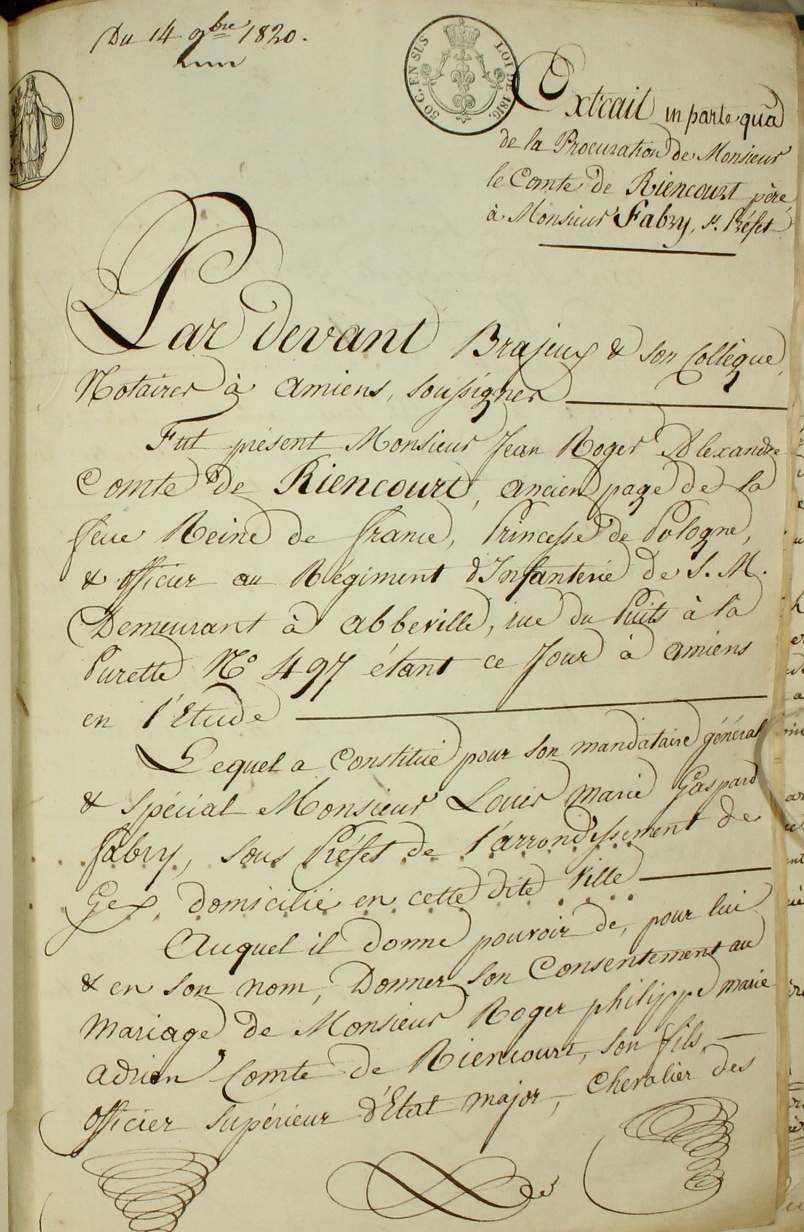 Du 14 9bre 1820.
50 C. EN SUS
LOI DE 1816.
Extrait in parte quâ
de la Procuration de Monsieur
le Comte de Riencourt père
à Monsieur Fabry, s. Préfet
Par devant Brajeux & son Collègue,
Notaires à amiens, soussignés
Fut présent Monsieur Jean Roger Alexandre
Comte de Riencourt, ancien page de la
feue Reine de france, Princesse de Pologne,
& officier au Régiment d'Infanterie de S. M.
Demeurant à abbeville, rue du Puits à la
Purette No 497 étant ce Jour à amiens
en l'Etude
Lequel a Constitué pour son mandataire général
& spécial Monsieur Louis marie Gaspard
fabry, sous Préfet de l'arrondissement de
Gex, domicilié en cette dite Ville
Auquel il donne pouvoir de, pour lui
& en son nom, Donner son Consentement au
mariage de Monsieur Roger philippe marie
adrien Comte de Riencourt, son fils,
officier supérieur d'Etat major, Chevalier des
des